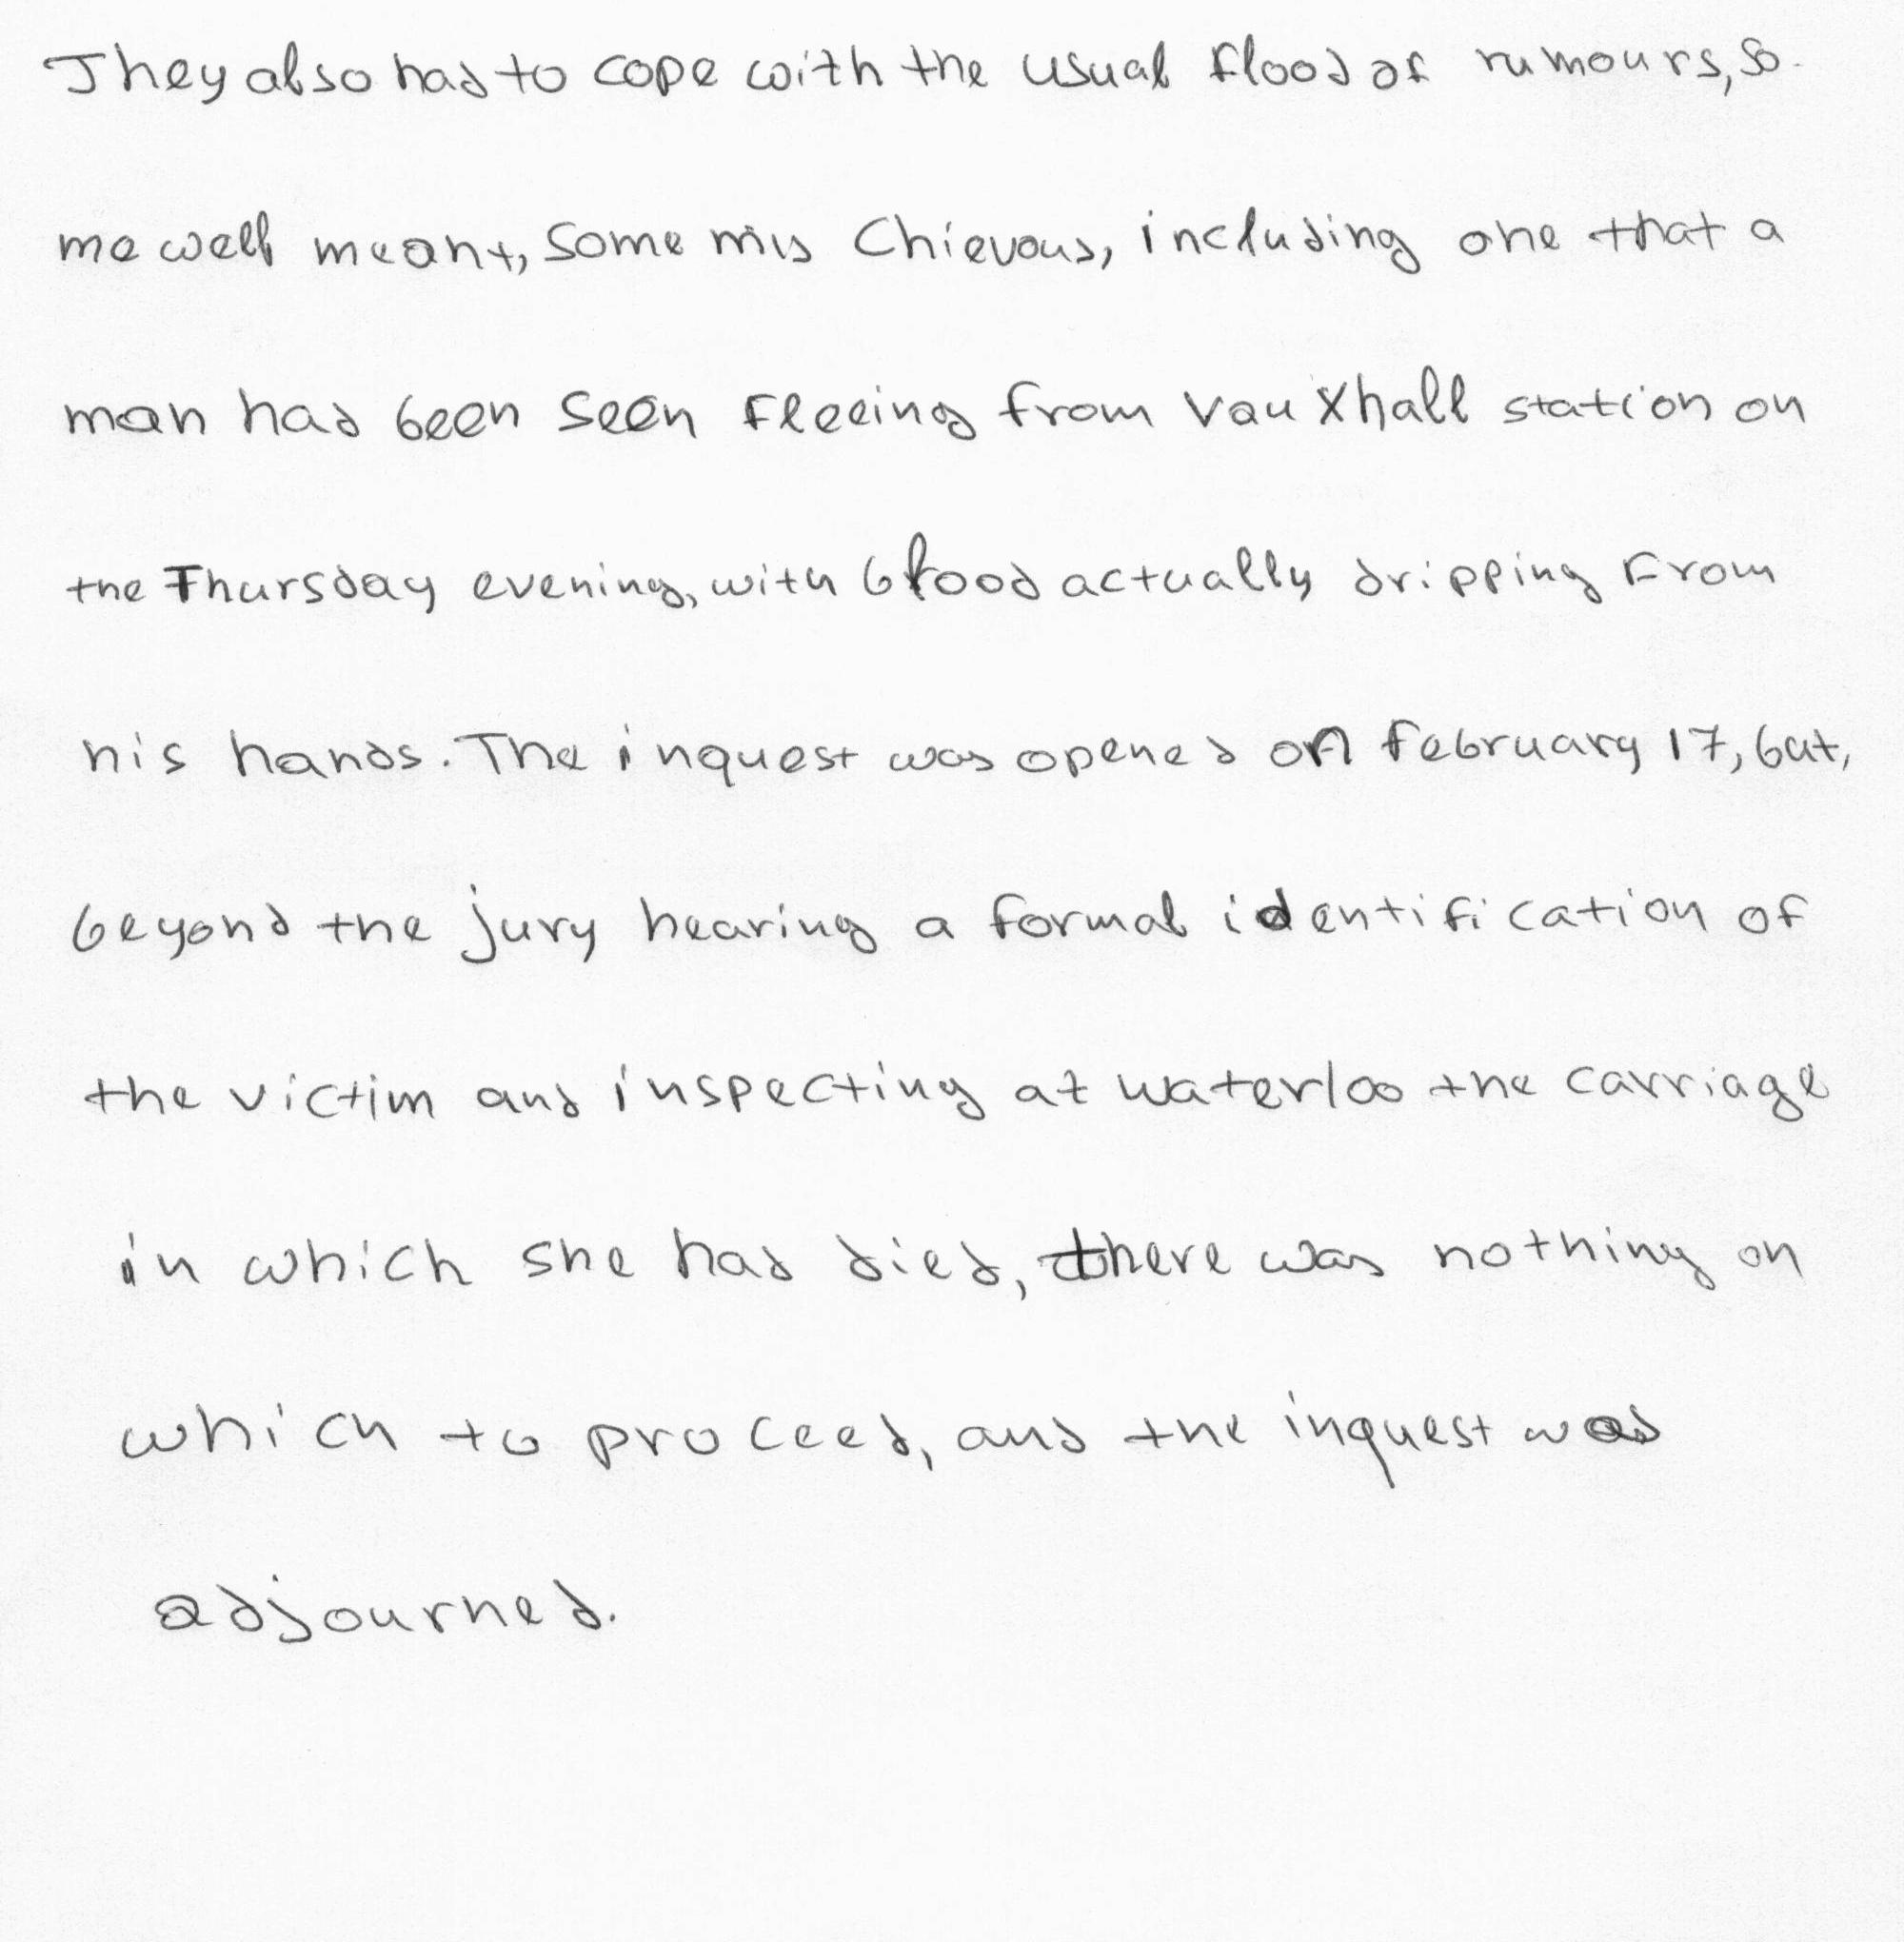 They also had to cope with the usual flood of rumours, so-
me well meant, some mis chievous, including one that a
man had been seen fleeing from Vauxhall station on
the Thursday evening, with blood actually dripping from
his hands. The inquest was opened on February 17, but,
beyond the jury hearing a formal identification of
the victim and inspecting at Waterloo the carriage
in which she had died, there was nothing on
which to proceed, and the inquest was
adjourned.